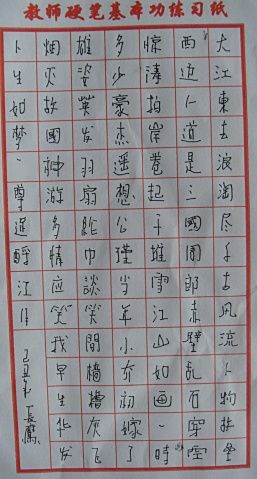 教师硬笔基本功练习纸
大江東去浪淘尽千古风流人物故垒
西边人道是三國周郎赤壁乱石穿空
惊涛拍岸卷起千堆雪江山如画一時
多少豪杰遥想公瑾当年小乔初嫁了
雄姿英发羽扇綸巾談笑間樯橹灰飞
烟灭故國神游多情应笑我早生华发
人生如梦一尊還酹江月
己丑年